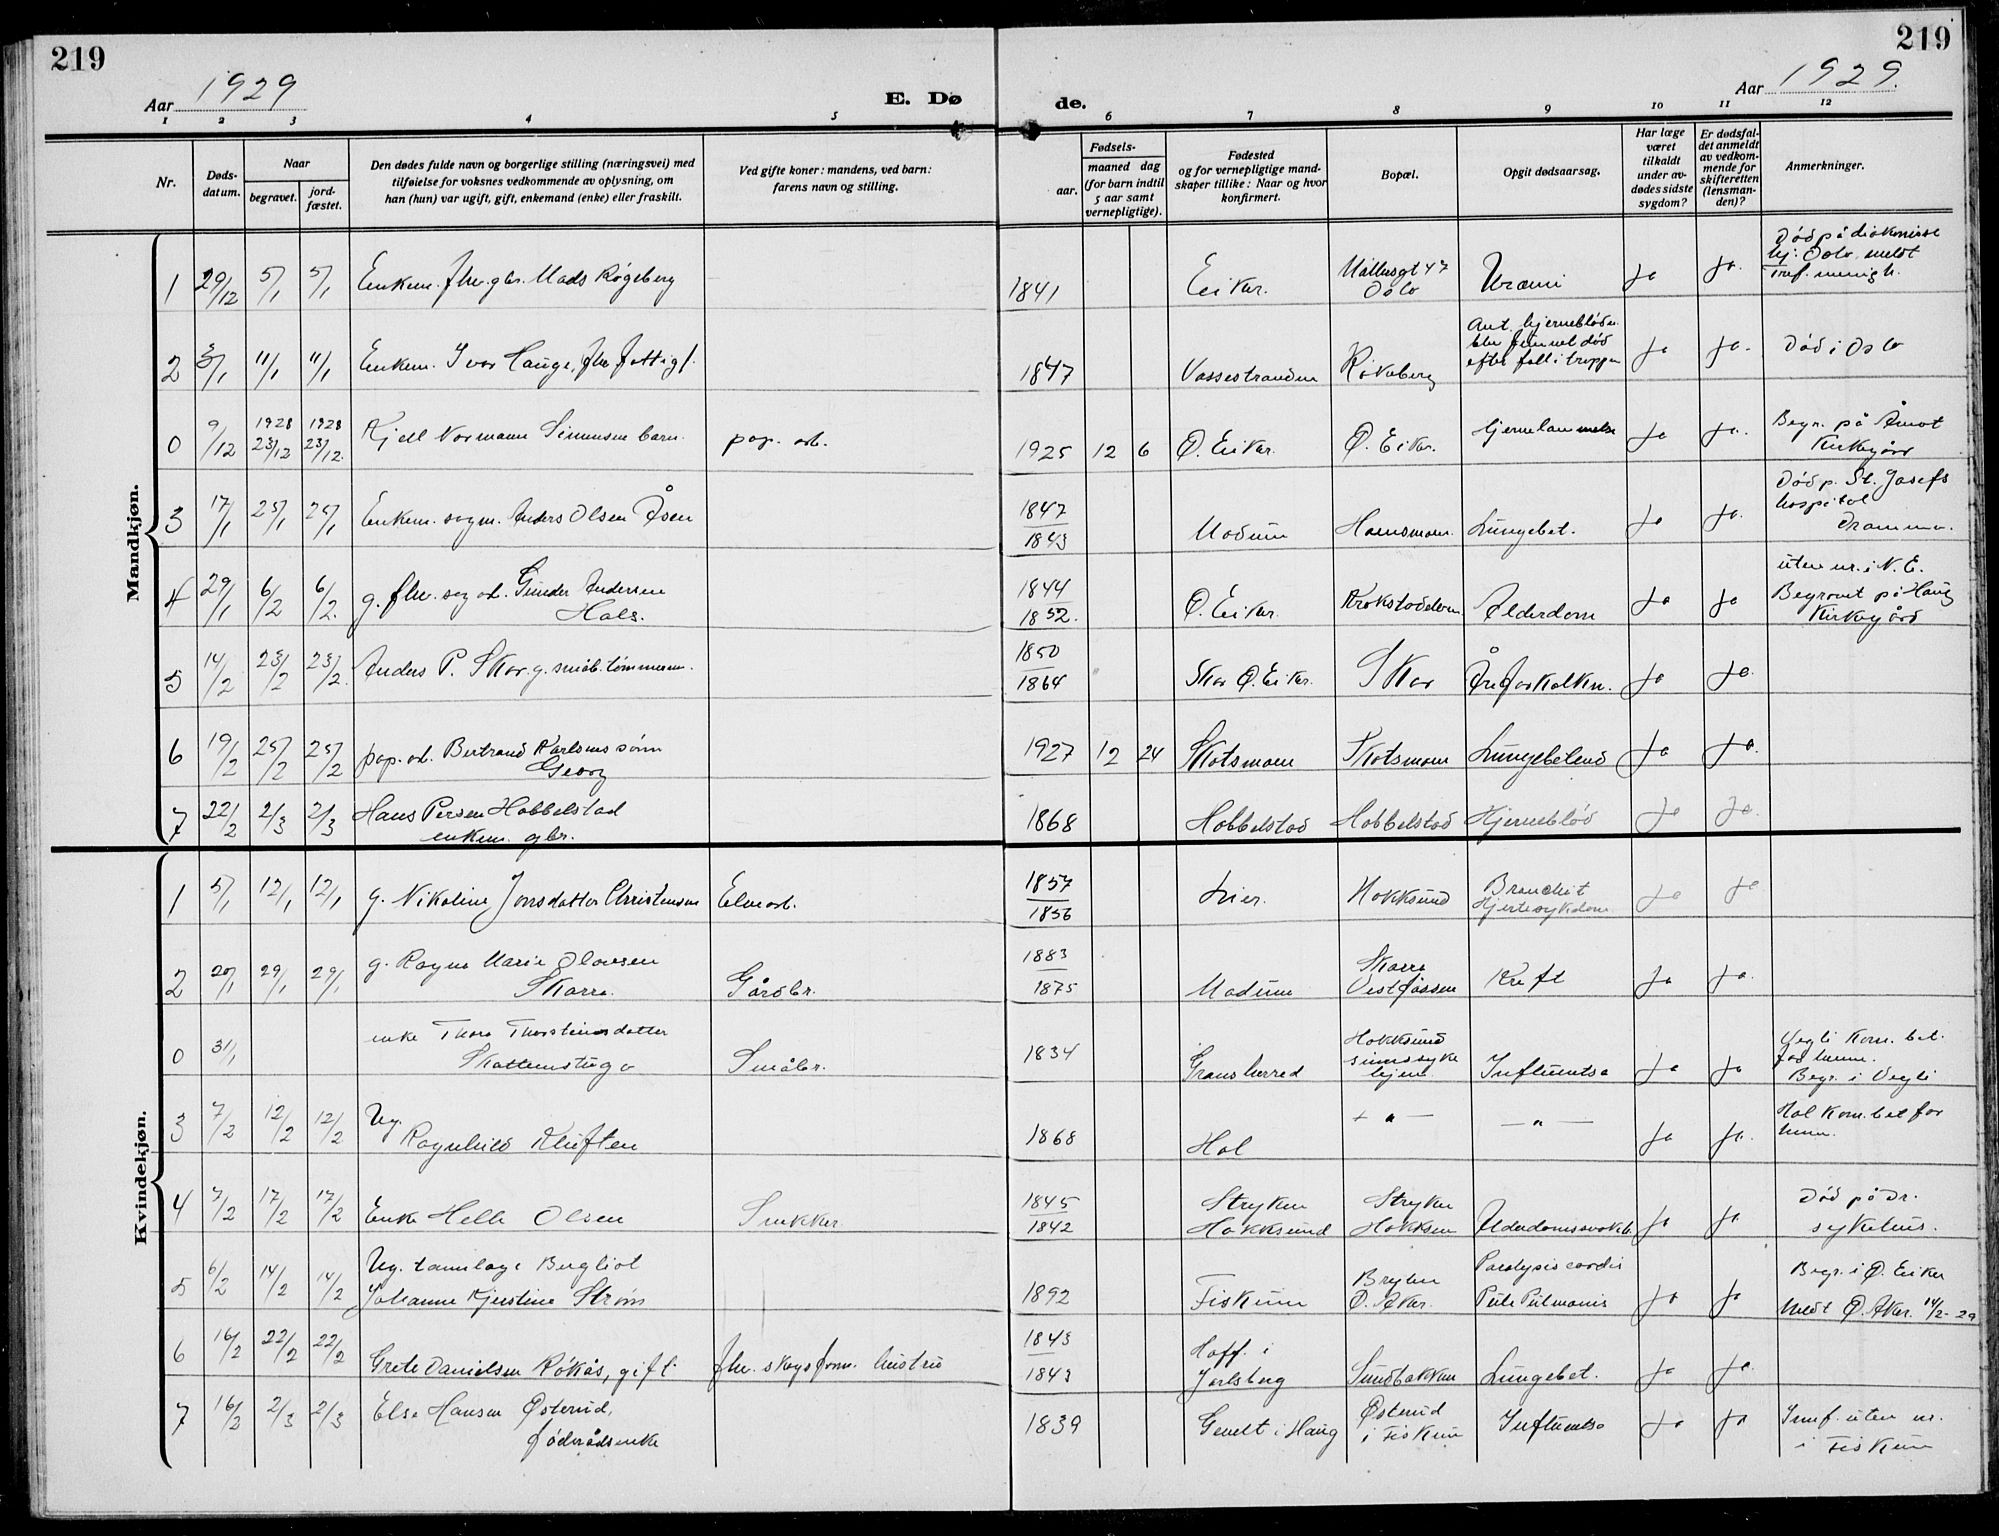 219
219
Aar 1929
E. Dø
de.
Aar 1929.
1 2 3 4 5 6 7 8 9 10 11 12
Nr.
Døds-
datum.
Naar
begravet.
jord-
fæstet.
Den dødes fulde navn og borgerlige stilling (næringsvei) med
tilføielse for voksnes vedkommende av oplysning, om
han (hun) var ugift, gift, enkemand (enke) eller fraskilt.
Ved gifte koner: mandens, ved barn:
farens navn og stilling.
Fødsels-
aar.
maaned dag
(for barn indtil
5 aar samt
vernepligtige).
Fødested
og for vernepligtige mand-
skaper tillike: Naar og hvor
konfirmert.
Bopæl.
Opgit dødsaarsag.
Har læge
været
tilkaldt
under av-
dødes sidste
sygdom?
Er dødsfal-
det anmeldt
av vedkom-
mende for
skifteretten
(lensman-
den)?
Anmerkninger.
Mandkjøn.
1 29/12 5/1 5/1 Enkem. fhv. gbr. Mads Røgeberg 1841 Eiker. Møllergt 47 Oslo Uræmi ja ja. Død på diakonisse hj. Oslo, meldt
2 3/1 11/1 11/1 Enkem. Ivar Hauge, fhv. fattigf. 1847 Vossestranden Røkeberg Ant. hjerneblødn. blev funnet død efter fall i trappen ja ja. Død i Oslo
0 9/12 1928 23/12 1928 23/12. Kjell Normann Simensen barn. pap. arb. 1925 12 6 Ø. Eiker. Ø. Eiker. Hjernelammelse ja ja. Begr. på Åmot Kirkegård
3 17/1 25/1 25/1 Enkem. sagm. Anders Olsen Åsen 1847 1843 Modum Hamsmoen. Lungebet. ja ja. Død p. St. Josefs hospital Drammen.
4 29/1 6/2 6/2. g. fhv. sag arb. Gunder Andersen Hals. 1844 1852. Ø. Eiker. Krokstadelven Alderdom ja ja uten nr. i N. E. Begravet på Haug Kirkegård
5 14/2 23/2 23/2. Anders P. Skar. g. småb. tømmerm. 1850 1864 Skar Ø. Eiker. Skar Åreforkalkn. ja ja.
6 19/2 25/2 25/2 pap. arb. Bertrand Karlsens sønn Georg 1927 12 24 Skotsmoen Skotsmoen Lungebetend ja ja.
7 22/2 2/3 2/3 Hans Persen Hobbelstad enkem. gbr. 1868 Hobbelstad Hobbelstad Hjerneblød ja ja.
Kvindekjøn.
1 5/1 12/1 12/1 g. Nikoline Jonsdatter Christensen Elvearb. 1857 1856 Lier. Hokksund Bronchit Hjertesykdom ja ja
2 20/1 29/1 29/1 g. Ragna Marie Olausen Skarra. Gårdbr. 1883 1875 Modum Skarra Vestfossen Kreft ja ja.
0 31/1 enke Thora Thorsteinsdatter Skattemstugo Småbr. 1834 Gransherred Hokksund sinnssyke hjem. Influentsa ja ja Vegli Kom. bet. for henne. Begr. i Vegli
3 7/2 12/2 12/2 Ug. Ragnhild Kluften 1868 Hol — " — — " — ja ja. Hol kom. bet for henne.
4 7/2 17/2 17/2 Enke Helle Olsen Snekker 1845 1842 Stryken Hokksund Stryken Hokksun Alderdomssvakh. ja ja Død på Dr. sykehus.
5 6/2 14/2 14/2 Ug. tannlæge Bergliot Johanne Kjerstine Strøm 1892 Fiskum Bryhn Ø. Aker. Paralysis cordis ja ja Begr. i Ø. Eiker Meldt Ø. Aker. 14/2-29
6 16/2 22/2 22/2 Grete Danielsen Røkås, gift. fhv. skogsform. hustru 1843 1843 Hoff. i Jarlsberg Sundbakken Lungebet. ja ja.
7 16/2 2/3 2/3 Else Hansen Østerud, føderådsenke 1839 Gunelt i Haug Østerud i Fiskum Influentsa ja ja Innf. uten nr. i Fiskum